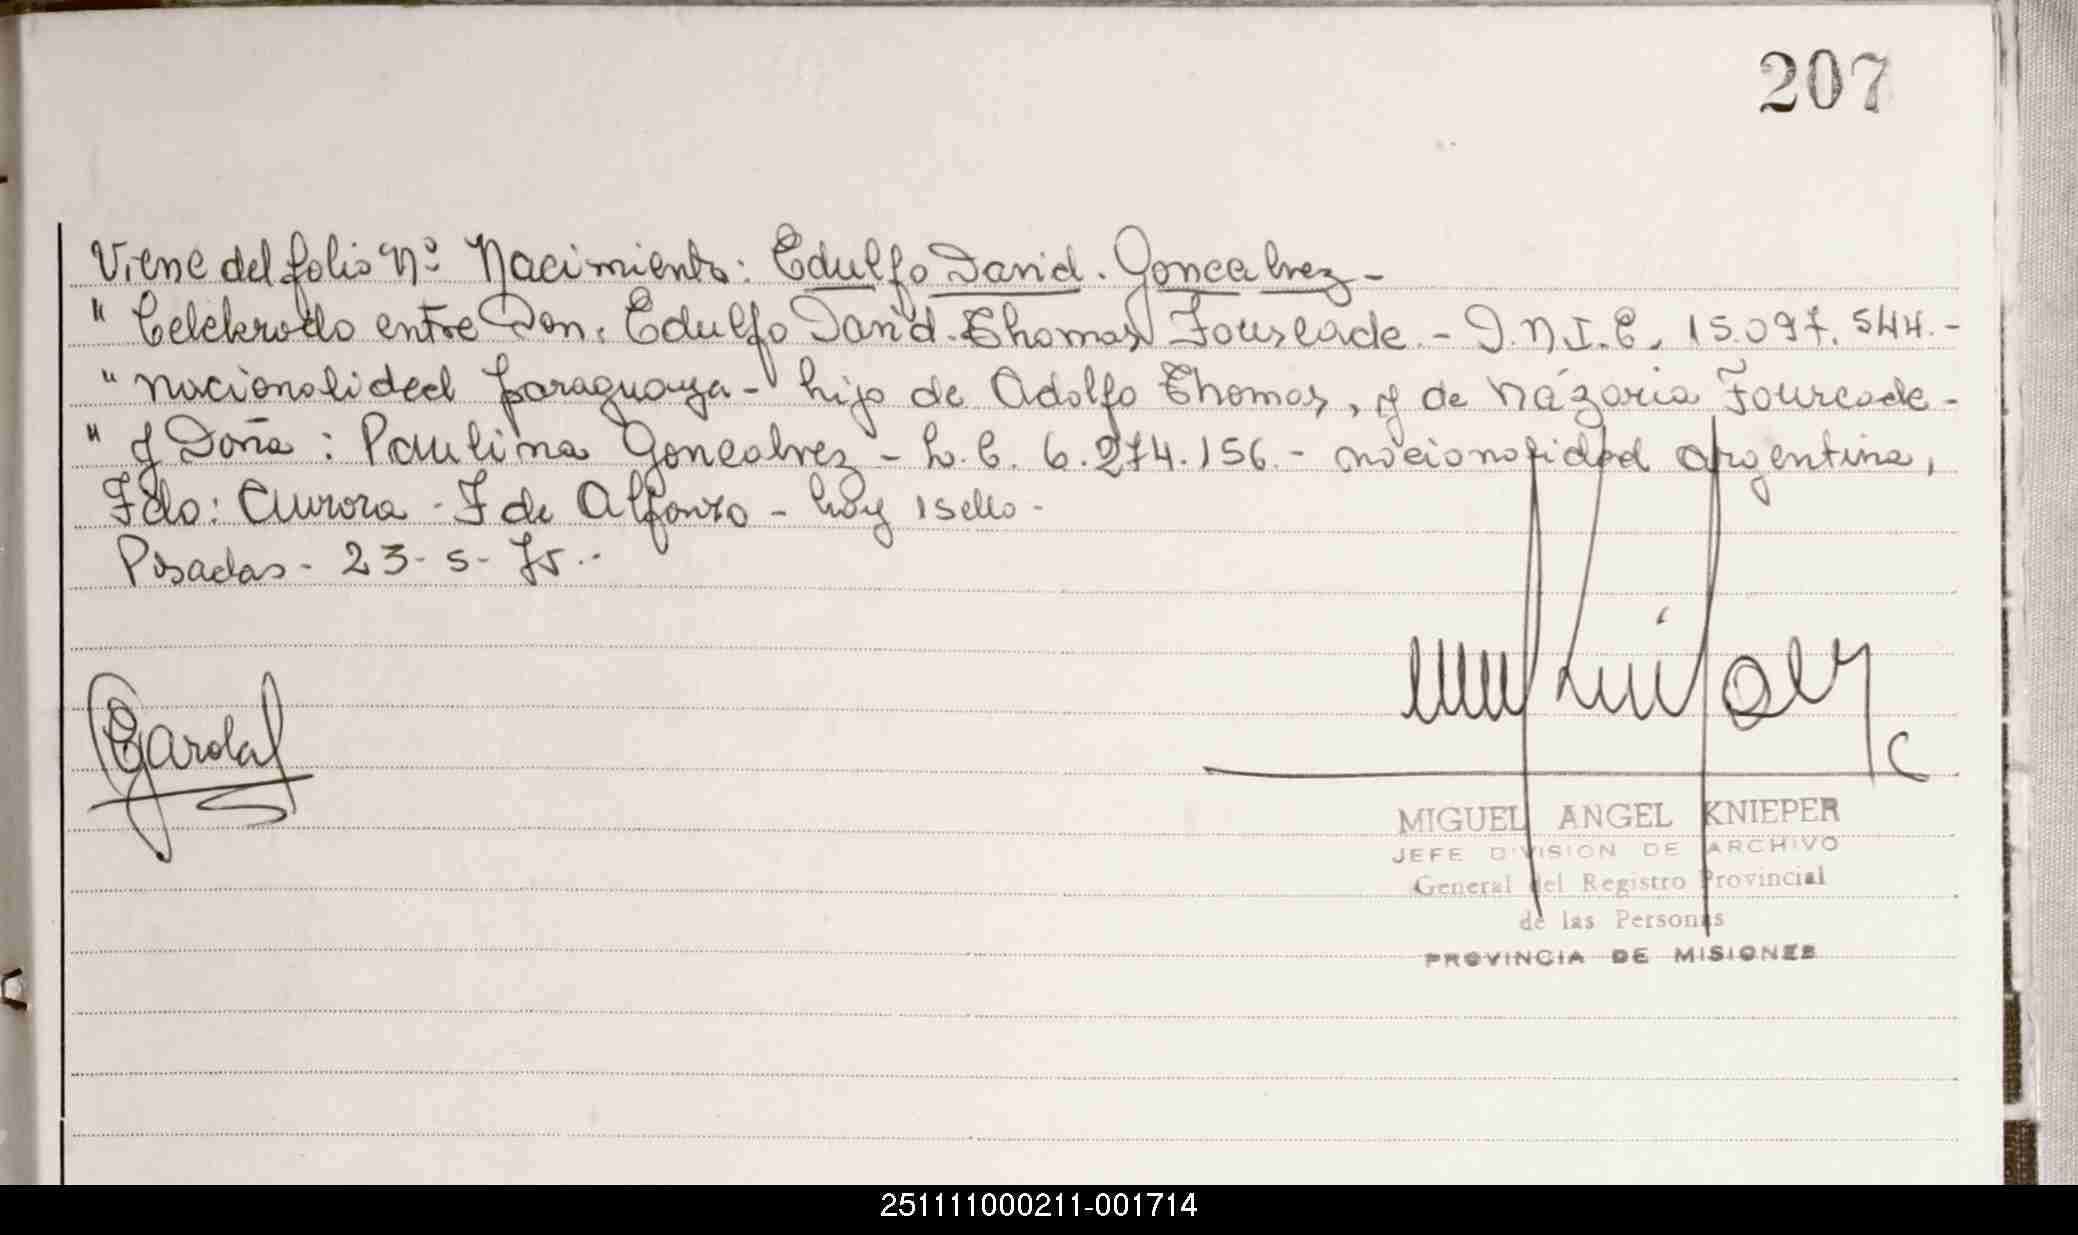 207
Viene del folio Nº Nacimiento: Edulfo David. Goncalvez -
" Celebrado entre Don: Edulfo David. Thomas Fourcade. - D.N.I.C. 15.097.544. -
" nacionalidad paraguaya - hijo de Adolfo Thomas, y de Názaria Fourcade -
" y Doña: Paulina Goncalvez - L.C. 6.274.156. - nacionalidad argentina,
Fdo: Aurora - F de Alfonso - hay 1 sello -
Posadas - 23 - 5 - 75. -
MIGUEL ANGEL KNIEPER
JEFE DIVISION DE ARCHIVO
General del Registro Provincial
de las Personas
PROVINCIA DE MISIONES
251111000211-001714